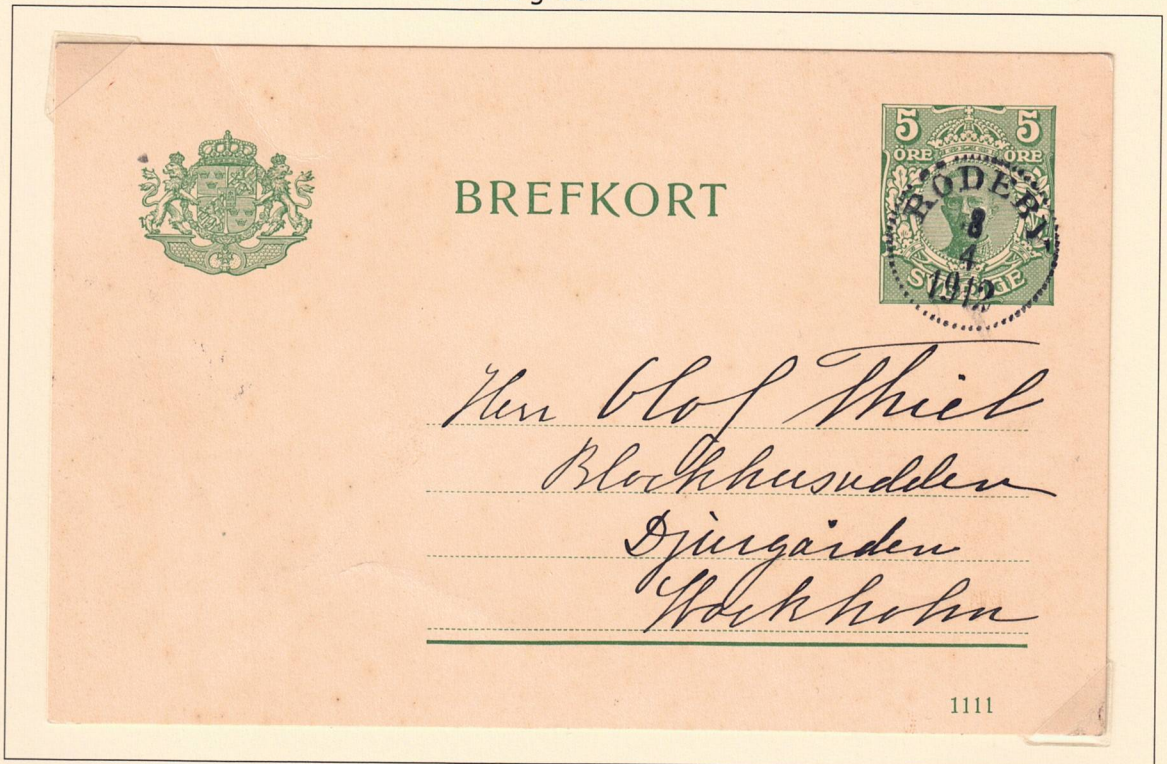 BREFKORT
5 5
ÖRE ÖRE
SVERIGE
RÖDEBY
8
4
1912
Herr Olof Thiel
Blockhusudden
Djurgården
Stockholm
1111